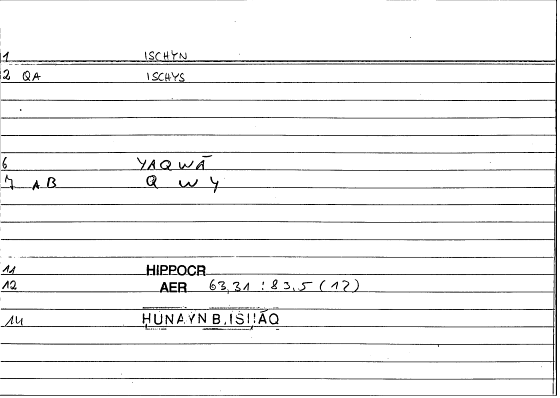 1 ISCHYN
2 QA ISCHYS
6 YAQWĀ
7 AB Q W Y
11 HIPPOCR
12 AER 63,31 : 83,5 (12)
14 HUNAYN B.ISḤĀQ